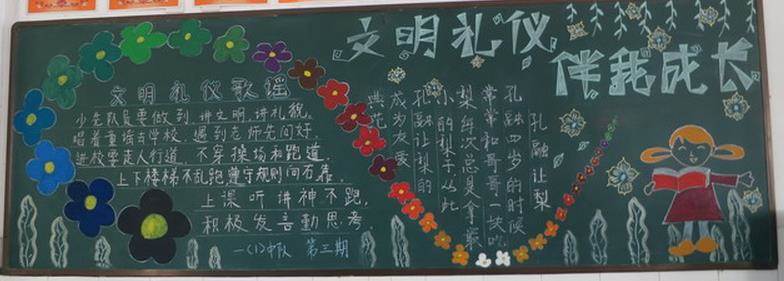 文明礼仪
伴我成长
文明礼仪歌谣
少先队员要做到,讲文明,讲礼貌。
唱着童谣去学校,遇到老师先问好,
进校要走人行道,不穿操场和跑道
上下楼梯不乱跑,遵守规则向右靠,
上课听讲神不跑,
积极发言勤思考.
一(1)中队 第三期
孔融让梨
孔融四岁的时候
常常和哥哥一块吃
梨每次总是拿最
小的梨子从此
孔融让梨的
成为友爱
典范